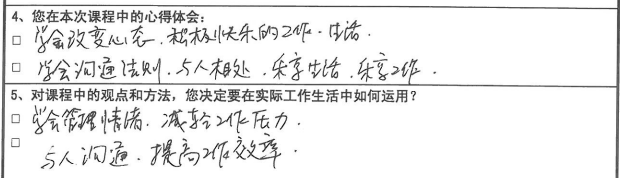 4、您在本次课程中的心得体会：
□ 学会改变心态，积极快乐的工作．生活．
□ 学会沟通法则．与人相处．乐享生活．乐享工作．
5、对课程中的观点和方法，您决定要在实际工作生活中如何运用？
□ 学会管理情绪．减轻工作压力．
□ 与人沟通．提高工作效率．